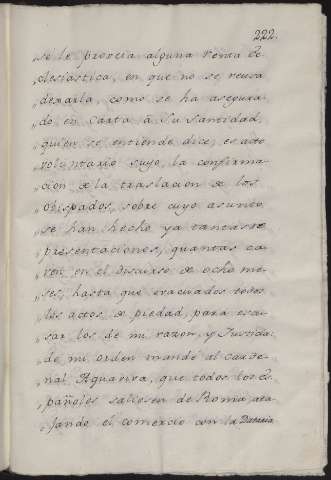 222.
se le provea alguna renta Ec-
„ clesiastica, en que no se reusa
„ dexarla, como se ha asegura-
„ do en Carta à Su Santidad,
„ quien se entiende dice, es acto
„ voluntario suyo, la confirma-
„ cion de la traslacion de los
„ obispados, sobre cuyo asunto
„ se han hecho ya tantas re-
„ presentaciones, quantas ca-
„ ven en el discurso de ocho me-
„ ses, hasta que evacuados todos
„ los actos de piedad, para escu-
„ sar los de mi razon, y Justicia,
„ de mi orden mandé al Carde-
„ nal Aquaviva, que todos los Es-
„ pañoles saliesen de Roma ata-
„ jando el comercio con la Dataria